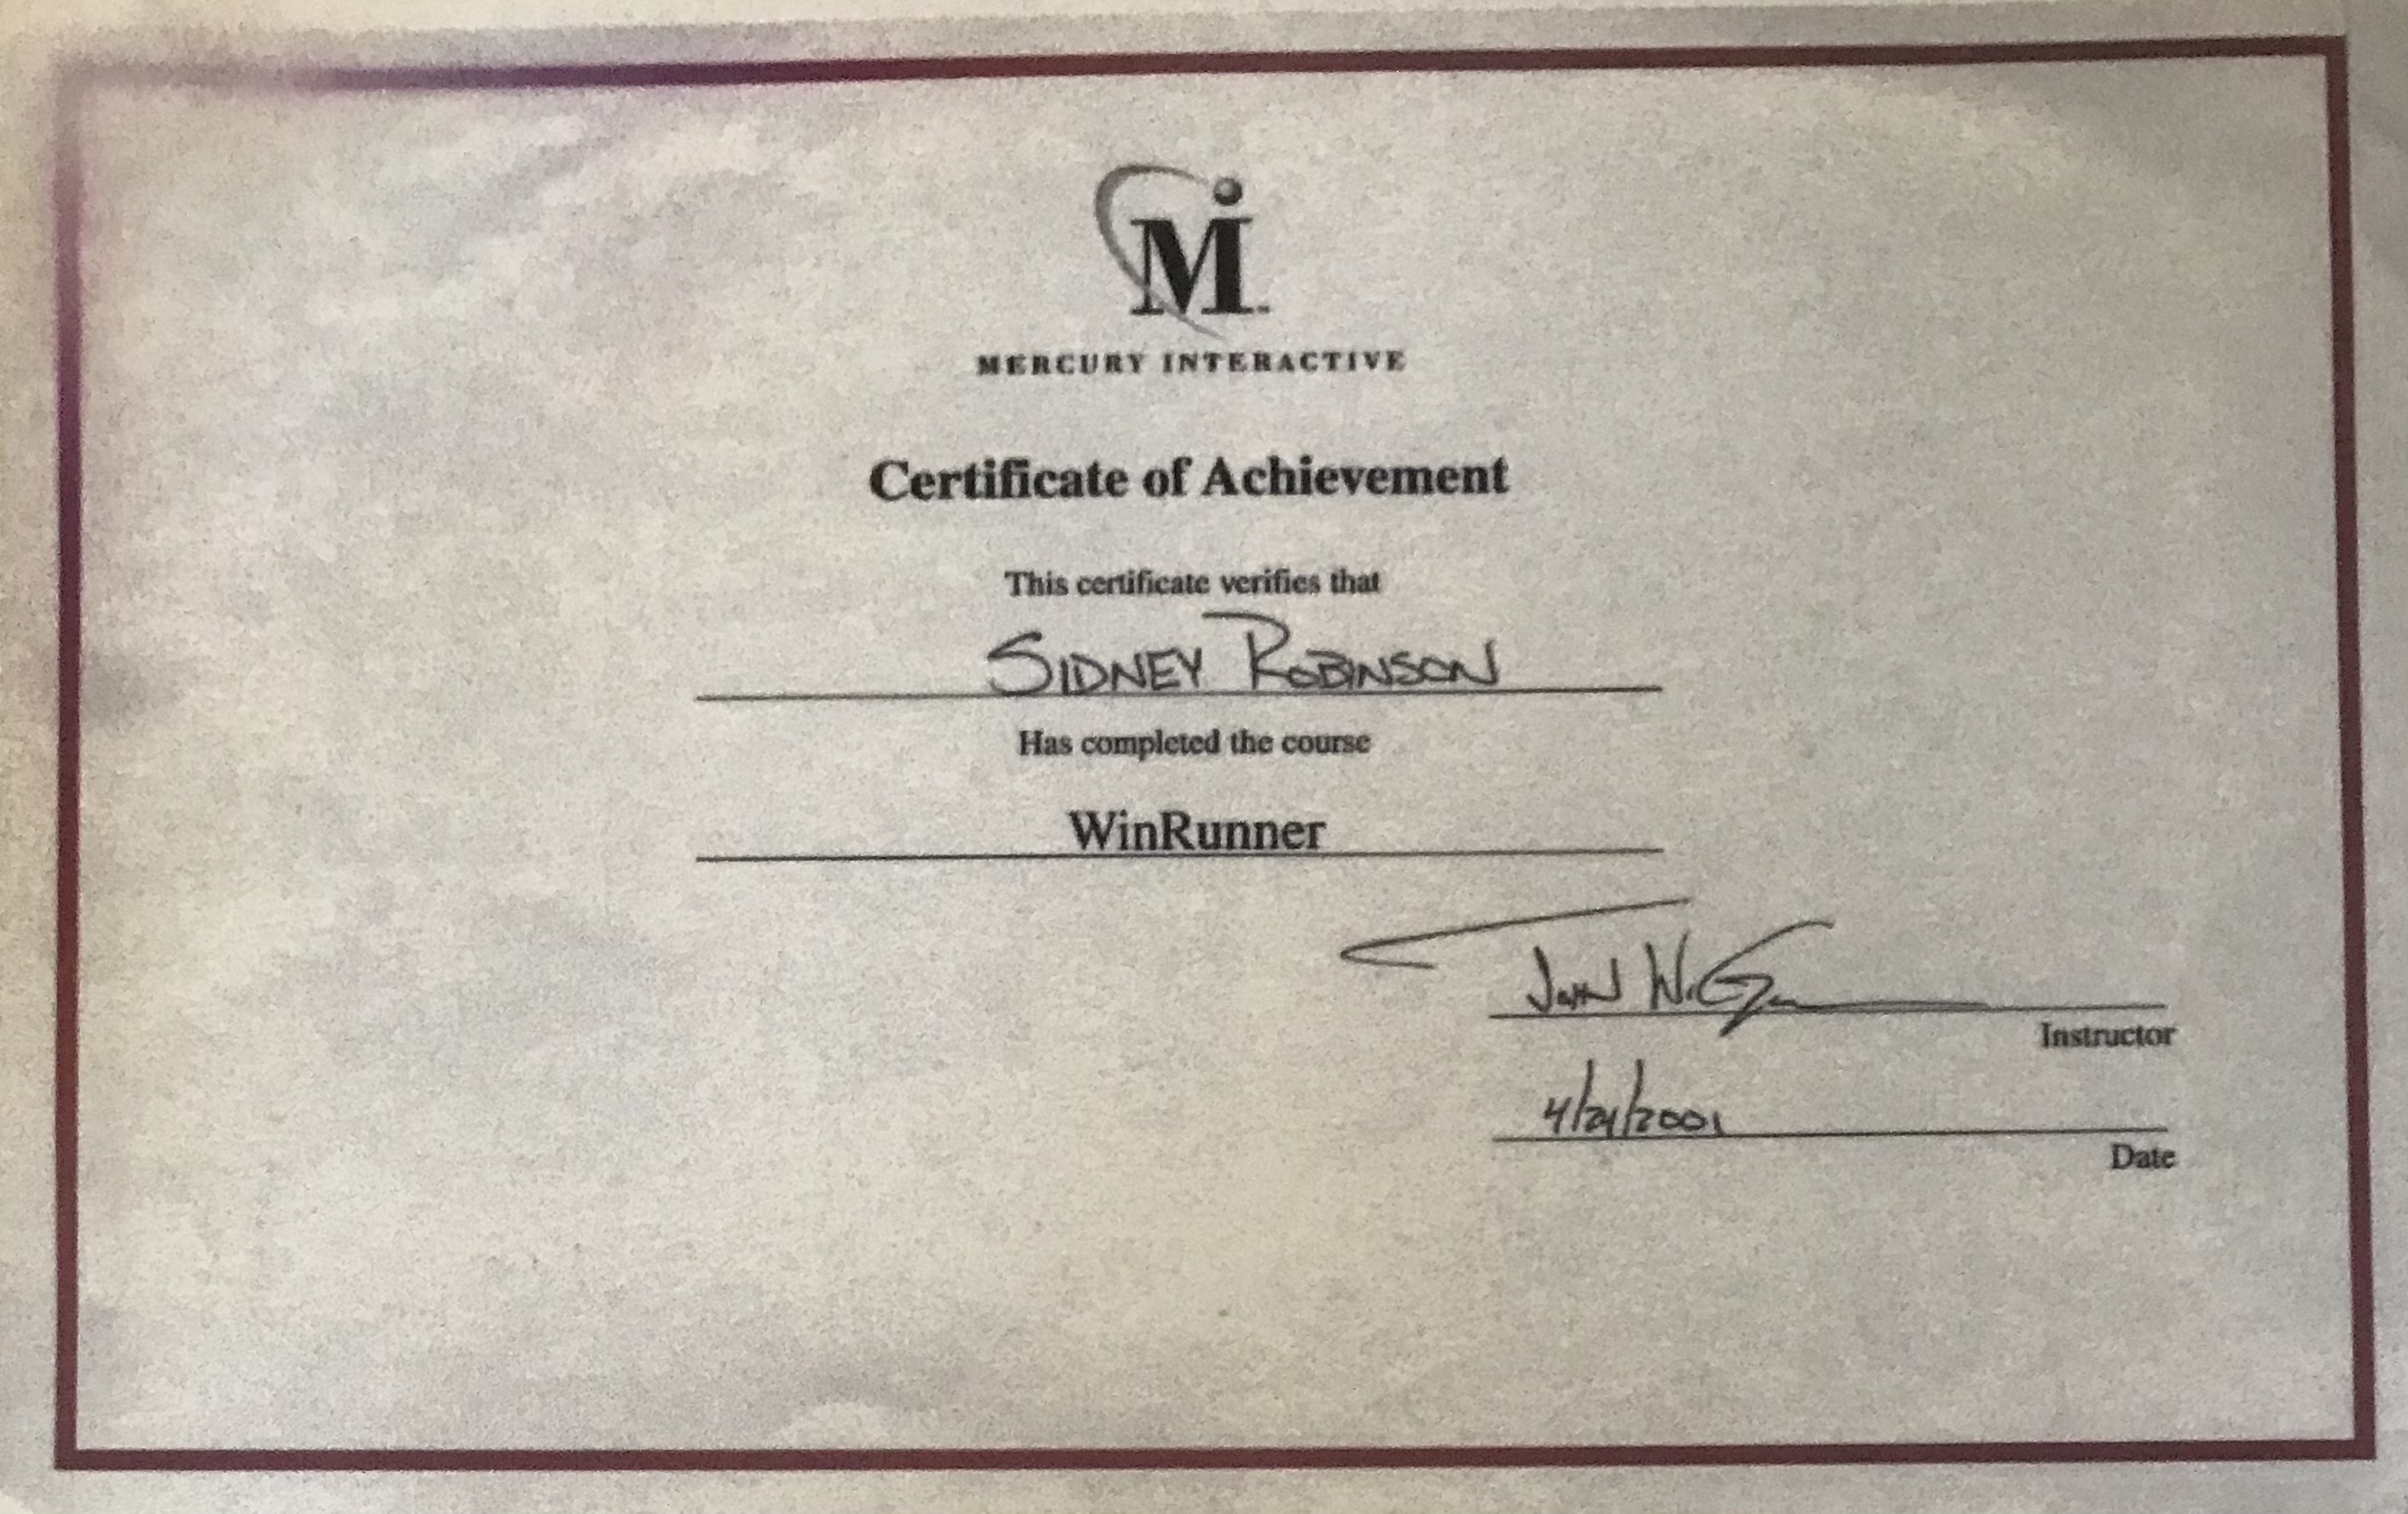 Mi
MERCURY INTERACTIVE
Certificate of Achievement
This certificate verifies that
SIDNEY ROBINSON
Has completed the course
WinRunner
JOHN W.
Instructor
Date